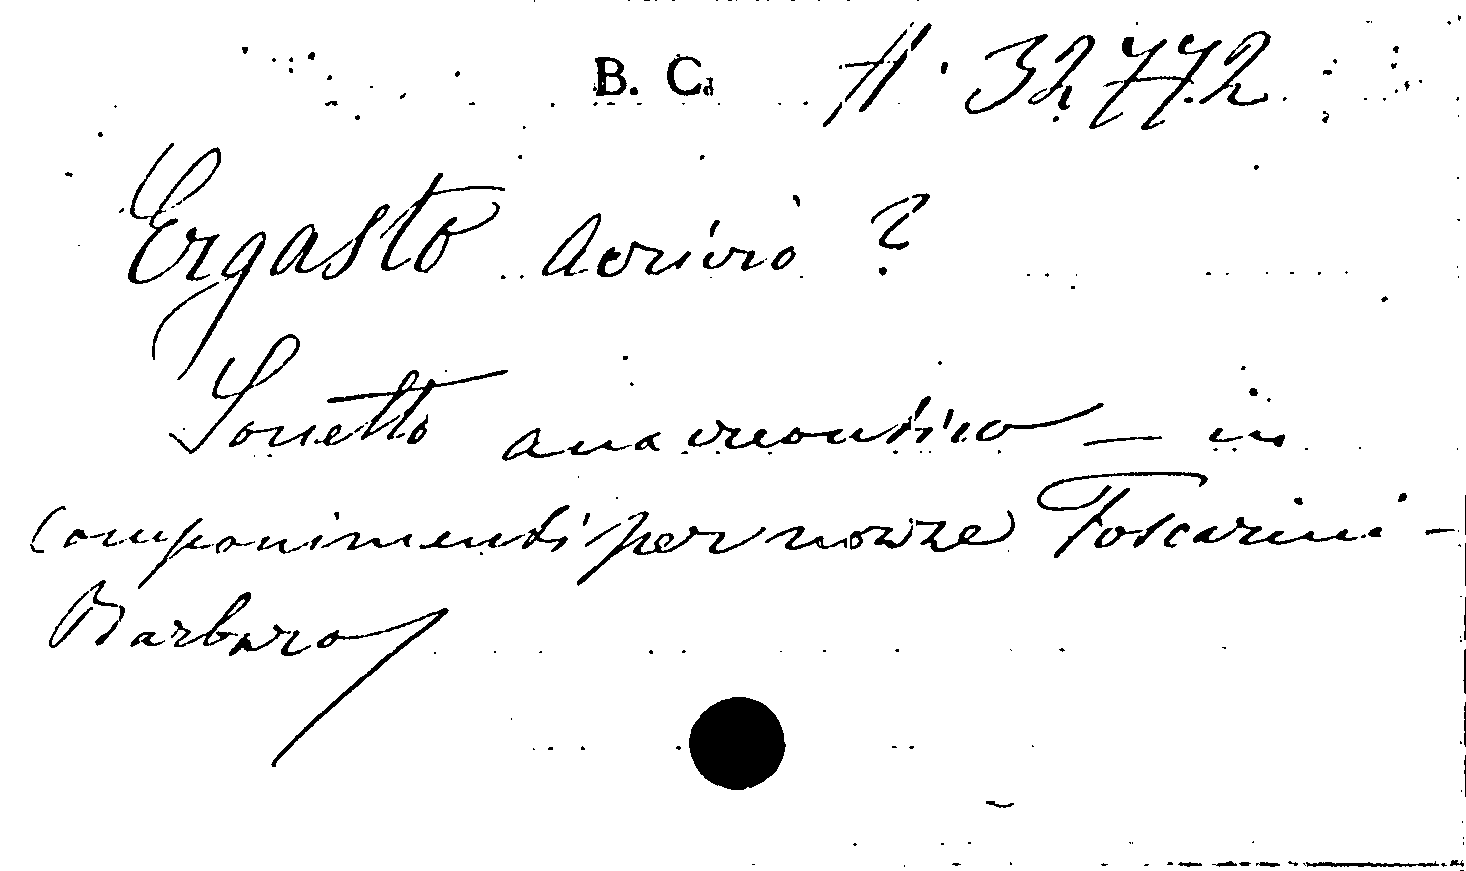 B. C. H. 32772
Ergasto Acrivio ?
Sonetto anacreontico — in
componimenti per nozze Foscarini -
Barbaro